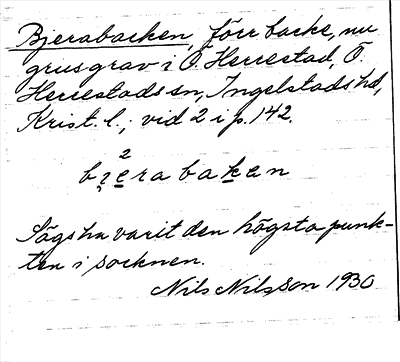 Bjerabacken, förr backe, nu
grusgrav i Ö. Herrestad, Ö.
Herrestads sn, Ingelstads hd,
Krist. l.; vid 2 i p. 142.
2
bi̯erabaken
Sägs ha varit den högsta punk-
ten i socknen.
Nils Nilsson 1930